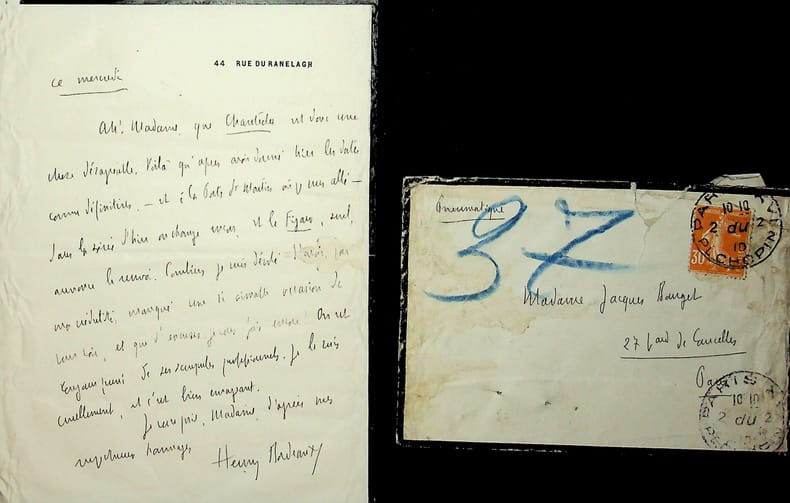 44 RUE DU RANELAGH
ce mercredi
Ah! Madame, que Chantecler est donc une
chose désagréable. Voilà qu'après avoir donné hier les dates
comme définitives, — et à la Porte St Martin où je suis allé —
dans la soirée d'hier on change encore, et le Figaro, seul,
annonce le renvoi. Combien je suis désolé d'avoir, par
ma crédulité, manqué une si aimable occasion de
vous voir, et que d'excuses je vous fais encore! On est
toujours puni de ses scrupules professionnels. Je le suis
cruellement, et c'est bien ennuyant.
Je vous prie, Madame, d'agréer mes
respectueux hommages
Henry Bordeaux
Pneumatique
37
Madame Jacques
27
Paris
30
PARIS
10 10
2 du 2
10
PL CHOPIN
PARIS
10 10
2 du 2
10